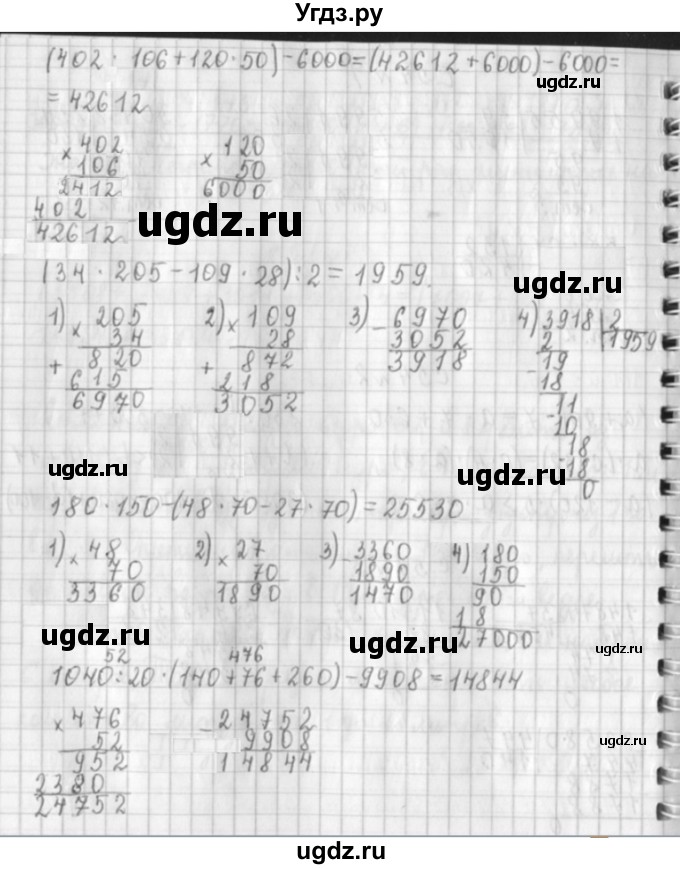 Угдз.ру
(402 · 106 + 120 · 50) - 6000 = (42612 + 6000) - 6000 =
ugdz.ru
= 42612
× 402
106
2412
402
42612
× 120
50
6000
ugdz.ru
(34 · 205 - 109 · 28) : 2 = 1959.
ugdz.ru
1) × 205
34
+ 820
615
6970
2) × 109
28
+ 872
218
3052
3) - 6970
3052
3918
4) 3918 | 2
2 1959
- 19
18
- 11
10
18
- 18
0
ugdz.ru
ugdz.ru
ugdz.ru
180 · 150 - (48 · 70 - 27 · 70) = 25530
1) × 48
70
3360
2) × 27
70
1890
3) - 3360
1890
1470
4) 180
150
90
18
27000
ugdz.ru
ugdz.ru
ugdz.ru
52 476
1040 : 20 · (140 + 76 + 260) - 9908 = 14844
× 476
52
952
2380
24752
- 24752
9908
14844
ugdz.ru
ugdz.ru